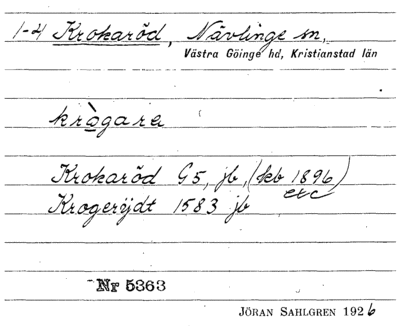 1-4 Krokaröd, Nävlinge sn,
Västra Göinge hd, Kristianstad län
kràgara
Krokaröd G5, jb, (kb 1896)
etc
Krogerÿdt 1583 jb
Nr 5363
JÖRAN SAHLGREN 1926